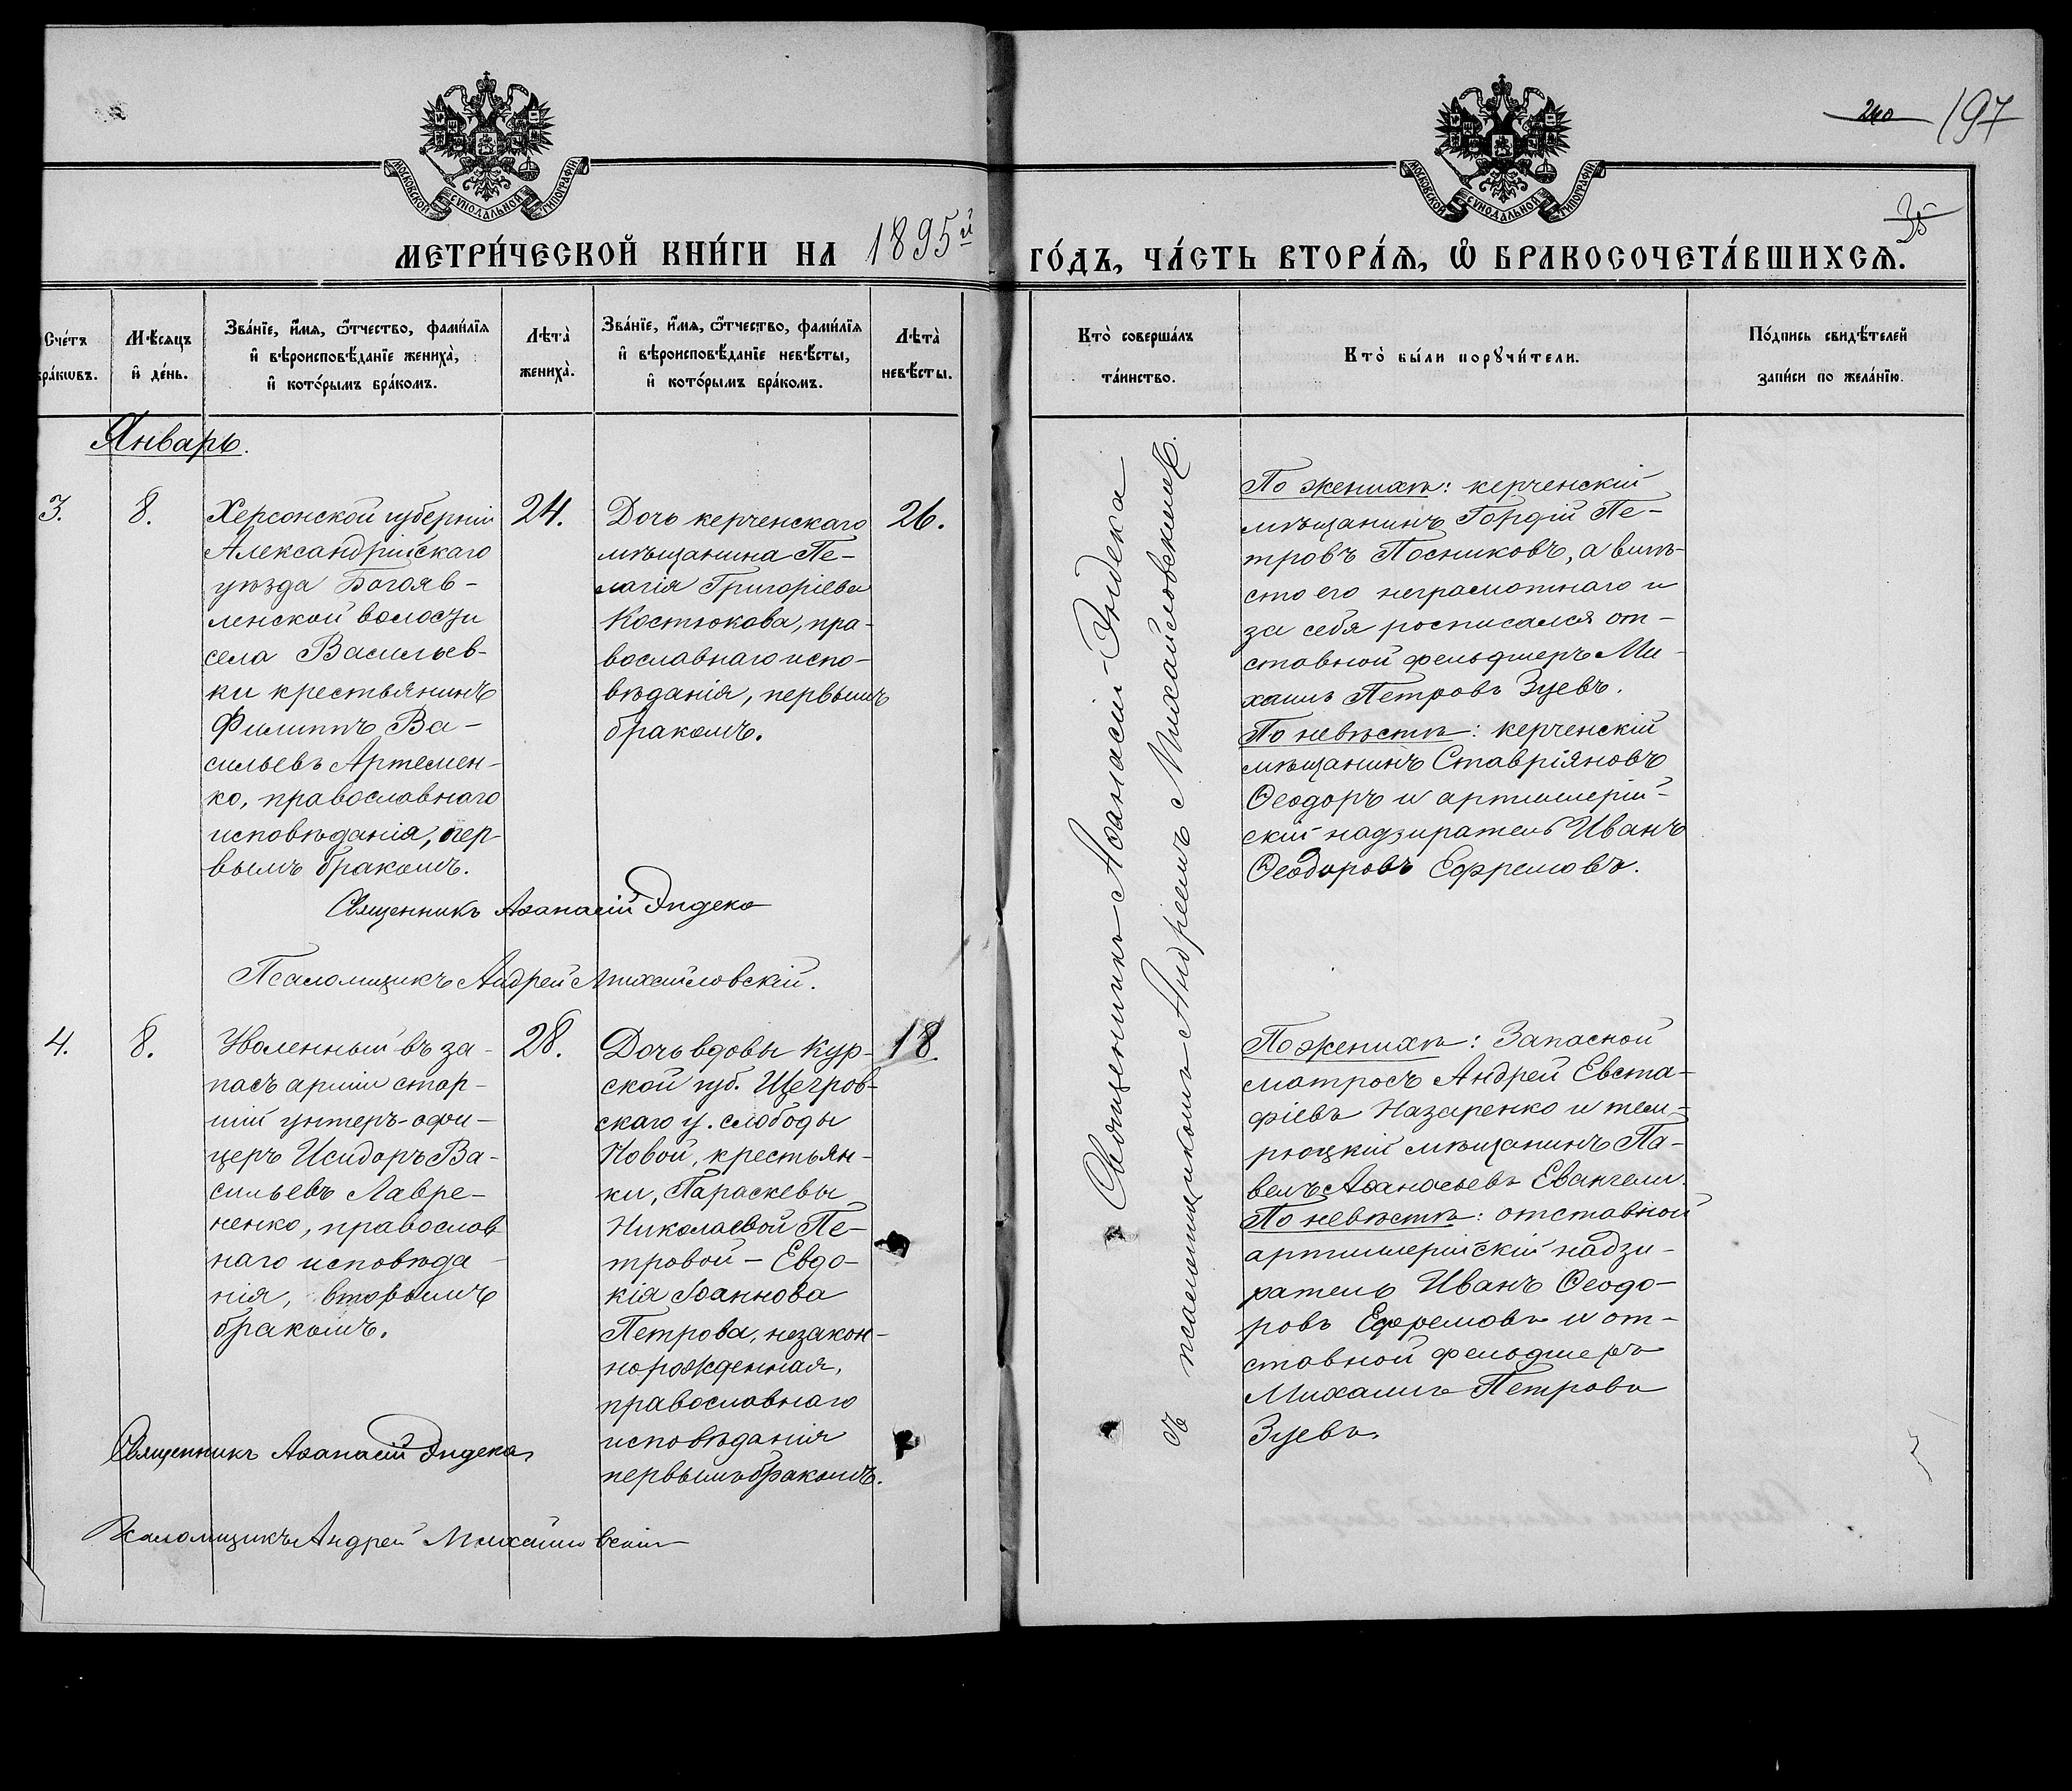 240 197
35
МОСКОВСКОЙ СѴНОДАЛЬНОЙ ТИПОГРАФІИ
МОСКОВСКОЙ СѴНОДАЛЬНОЙ ТИПОГРАФІИ
МЕТРИ́ЧЕСКОЙ КНИ́ГИ НА 1895й ГО́ДЪ, ЧА́СТЬ ВТОРА́Ѧ, Ѡ҆ БРАКОСОЧЕТА́ВШИХСѦ.
Сче́тъ
бра́кѡвъ.
Мѣ́сѧцъ
и҆ де́нь.
Зва́нїе, и҆́мѧ, ѻ҆́тчество, фами́лїѧ
и҆ вѣроисповѣ́данїе жениха̀,
и҆ кото́рымъ бра́комъ.
Лѣта̀
жениха̀.
Зва́нїе, и҆́мѧ, ѻ҆́тчество, фами́лїѧ
и҆ вѣроисповѣ́данїе невѣ́сты,
и҆ кото́рымъ бра́комъ.
Лѣта̀
невѣ́сты.
Кто̀ соверша́лъ
та́инство.
Кто̀ бы́ли порꙋчи́тели.
По́дпись свидѣ́телей
за́писи по жела́нїю.
Январь.
3.
8.
Херсонской губерніи
Александрійскаго
уѣзда Богояв-
ленской волости
села Васильев-
ки крестьянинъ
Филиппъ Ва-
сильевъ Артемен-
ко, православнаго
исповѣданія, пер-
вымъ бракомъ.
24.
Дочь керченскаго
мѣщанина Пе-
лагія Григоріева
Костюкова, пра-
вославнаго испо-
вѣданія, первымъ
бракомъ.
26.
Священникъ Аѳанасій Эндека
Псаломщикъ Андрей Михайловскій.
Священникъ Аѳанасій Эндека
съ псаломщикомъ Андреемъ Михайловскимъ.
По женихѣ: керченскій
мѣщанинъ Гордій Пе-
тровъ Посниковъ, а вмѣ-
сто его неграмотнаго и
за себя росписался от-
ставной фельдшеръ Ми-
хаилъ Петровъ Зуевъ.
По невѣстѣ: керченскій
мѣщанинъ Ставріяновъ
Ѳеодоръ и артиллерій-
скій надзиратель Иванъ
Ѳеодоровъ Ефремовъ.
4.
8.
Уволенный въ за-
пасъ арміи стар-
шій унтеръ-офи-
церъ Исидоръ Ва-
сильевъ Лавре-
ненко, православ
наго исповѣда-
нія, вторымъ
бракомъ.
28.
Дочь вдовы Кур-
ской губ. Щегров-
скаго у. слободы
Новой, крестьян-
ки, Параскевы
Николаевой Пе-
тровой - Евдо-
кія Іоаннова
Петрова, незакон-
норожденная,
православнаго
исповѣданія
первымъ бракомъ.
18.
Священникъ Аѳанасій Эндека
Псаломщикъ Андрей Михайловскій
По женихѣ: Запасной
матросъ Андрей Евста-
фіевъ Назаренко и тем-
рюцкій мѣщанинъ Па-
велъ Аѳанасьевъ Евангели.
По невѣстѣ: отставной
артиллерійскій надзи-
ратель Иванъ Ѳеодо-
ровъ Ефремовъ и от-
ставной фельдшеръ
Михаилъ Петровъ
Зуевъ.